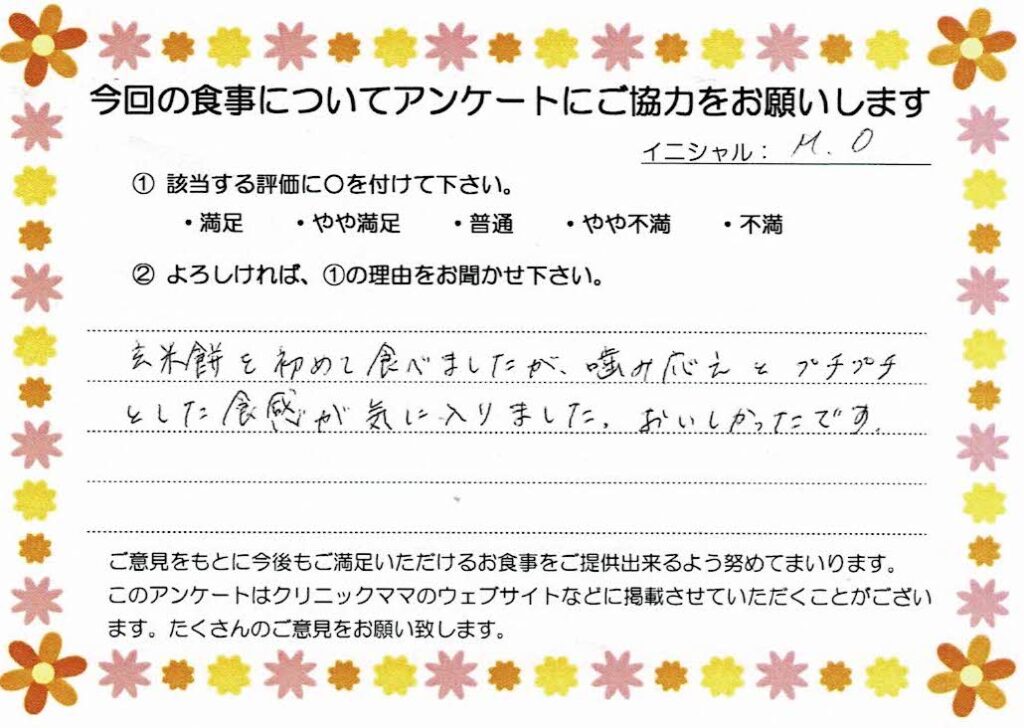 今回の食事についてアンケートにご協力をお願いします
イニシャル： M.O
① 該当する評価に〇を付けて下さい。
・満足 ・やや満足 ・普通 ・やや不満 ・不満
② よろしければ、①の理由をお聞かせ下さい。
玄米餅を初めて食べましたが、噛み応えとプチプチ
とした食感が気に入りました。おいしかったです。
ご意見をもとに今後もご満足いただけるお食事をご提供出来るよう努めてまいります。
このアンケートはクリニックママのウェブサイトなどに掲載させていただくことがござい
ます。たくさんのご意見をお願い致します。